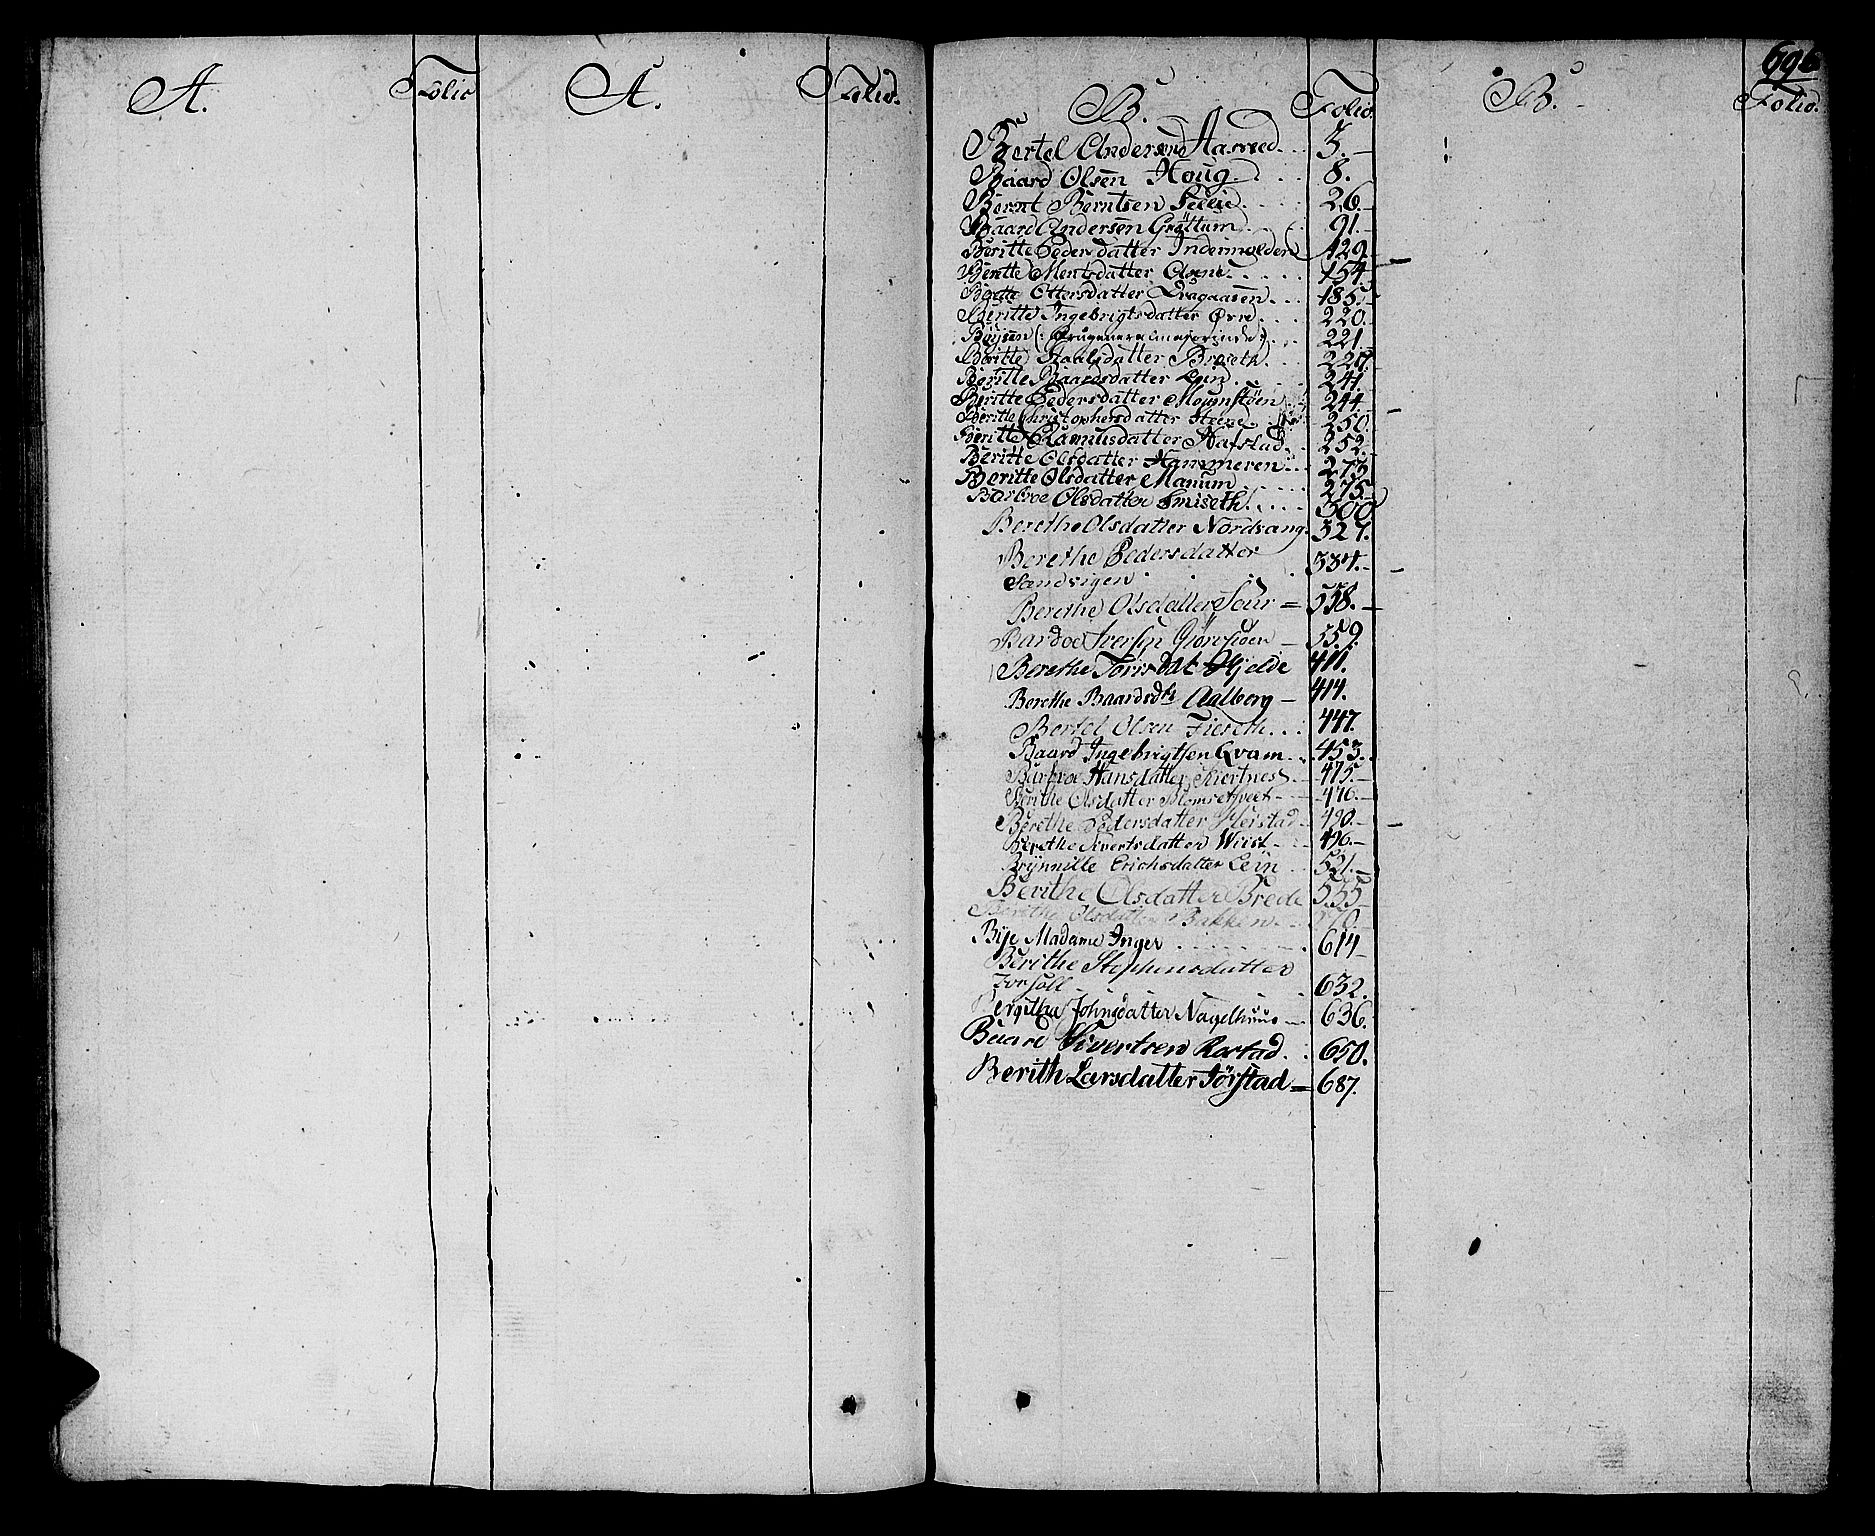 A. Folio A. Folio.
696
B. Folio. B. Folio.
Bertel Andersen Aasved. 3.
Baard Olsen Houg 8.
Bernt Berntsen 26.
Baard Andersen Grøttum 91.
Beritte Pedersdatter Indermolden 129.
Beritte Mentsdatter 154.
Beritte Ottersdatter 185.
Beritte Ingebrigtsdatter Øvre 220.
221.
Beritte Braseth
Beritte Baardsdatter Lein 241.
Beritte Pedersdatter Moumstøen 244.
Beritte Christophersdatter Steene 250.
Beritte Rasmusdatter Hafstad 252.
Beritte Olsdatter Hammeren 273.
Beritte Olsdatter Manum 275.
Barbroe Olsdatter Smiseth. 300.
Berethe Olsdatter Nordvang. 327.
Berethe Pedersdatter
Sandvigen 334.
Berethe Olsdatter 338.
Bardoe 359.
Berethe Hjelde 411.
Berethe Baardsdtr Aalberg 414.
Bertel Olsen Fiereth 447.
Baard Ingebrigtsen Qvam 453.
Barbroe Hansdatter 475.
Berithe Olsdatter 476.
Berethe Pedersdatter 490.
Berethe Sivertsdatter Wiist 496.
Brynnille Erichsdatter Lein 521.
Berithe Olsdatter Brede 555
Berethe Olsdatter Bakken 570
Bye Madame Inger 614
Berithe Stephensdatter
632.
Bergitha Johnsdatter Nagelhuus 636.
Baard Sivertsen Rostad. 650.
Berith Larsdatter Jørstad = 687.